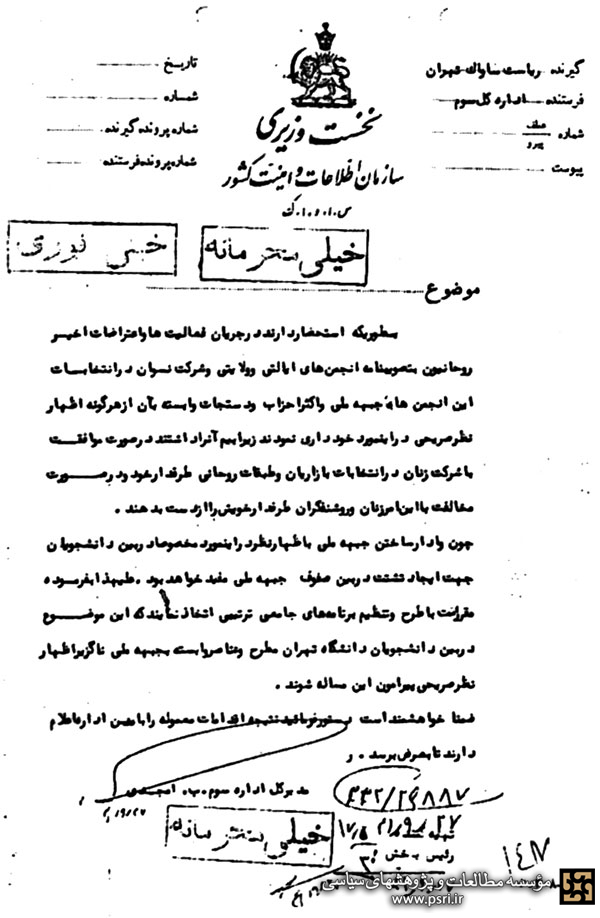 گیرنده ریاست ساواک تهران
فرستنده اداره کل سوم
شماره عطف پیرو
پیوست
تاریخ
شماره
شماره پرونده گیرنده
شماره پرونده فرستنده
نخست وزیری
سازمان اطلاعات و امنیت کشور
س.ا.و.ا.ک
خیلی محرمانه
خیلی فوری
موضوع
بطوریکه استحضار دارند در جریان فعالیت ها و اعتراضات اخیر
روحانیون بتصویبنامه انجمن های ایالتی و ولایتی و شرکت نسوان در انتخابات
این انجمن ها جبهه ملی و اکثر احزاب و دستجات وابسته بآن از هرگونه اظهار
نظر صریحی در اینمورد خود داری نمودند زیرا بیم آنرا داشتند در صورت موافقت
با شرکت زنان در انتخابات بازاریان و طبقات روحانی طرفدار خود و در صورت
مخالفت با این امر زنان و روشنفکران طرفدار خویش را از دست بدهند .
چون وادار ساختن جبهه ملی باظهار نظر در اینمورد مخصوصا در بین دانشجویان
جهت ایجاد تشتت در بین صفوف جبهه ملی مفید خواهد بود . علیهذا بفرموده
مقرر است با طرح و تنظیم برنامه های جامعی ترتیبی اتخاذ نمایند که این موضوع
در بین دانشجویان دانشگاه تهران مطرح و عناصر وابسته بجبهه ملی ناگزیر اظهار
نظر صریحی پیرامون این مساله شوند .
ضمنا خواهشمند است دستور فرمائید نتیجه اقدامات معموله را باین اداره اعلام
دارند تا بعرض برسد . ر
مدیر کل اداره سوم . ب . امجدی
خیلی محرمانه
رئیس بخش
۱۴۷
مؤسسه مطالعات و پژوهشهای سیاسی
www.psri.ir